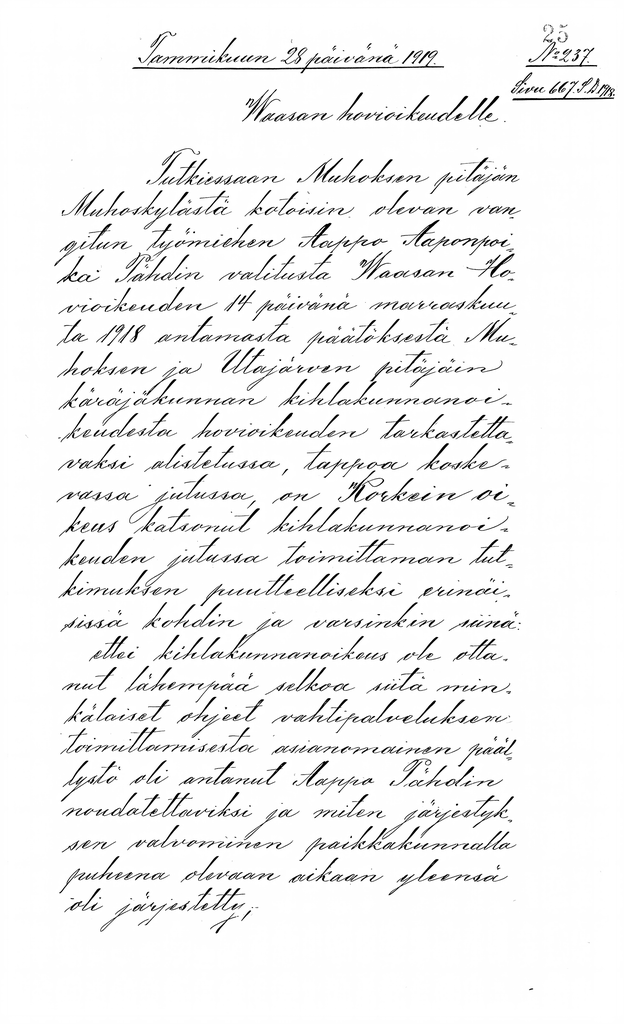 25
Tammikuun 28 päivänä 1919.
No 237.
Sivu 667. S.D. 1918.
Waasan hovioikeudelle.
Tutkiessaan Muhoksen pitäjän
Muhoskylästä kotoisin olevan van-
gitun työmiehen Aappo Aaponpoi-
ka Tähdin valitusta Waasan Ho-
vioikeuden 14 päivänä marraskuu-
ta 1918 antamasta päätöksestä Mu-
hoksen ja Utajärven pitäjäin
käräjäkunnan kihlakunnanoi-
keudesta hovioikeuden tarkastetta-
vaksi alistetussa, tappoa koske-
vassa jutussa, on Korkein oi-
keus katsonut kihlakunnanoi-
keuden jutussa toimittaman tut-
kimuksen puutteelliseksi erinäi-
sissä kohdin ja varsinkin siinä:
ettei kihlakunnanoikeus ole otta-
nut lähempää selkoa siitä min-
kälaiset ohjeet vahtipalveluksen
toimittamisesta asianomainen pääl-
lystö oli antanut Aappo Tähdin
noudatettaviksi ja miten järjestyk-
sen valvominen paikkakunnalla
puheena olevaan aikaan yleensä
oli järjestetty;